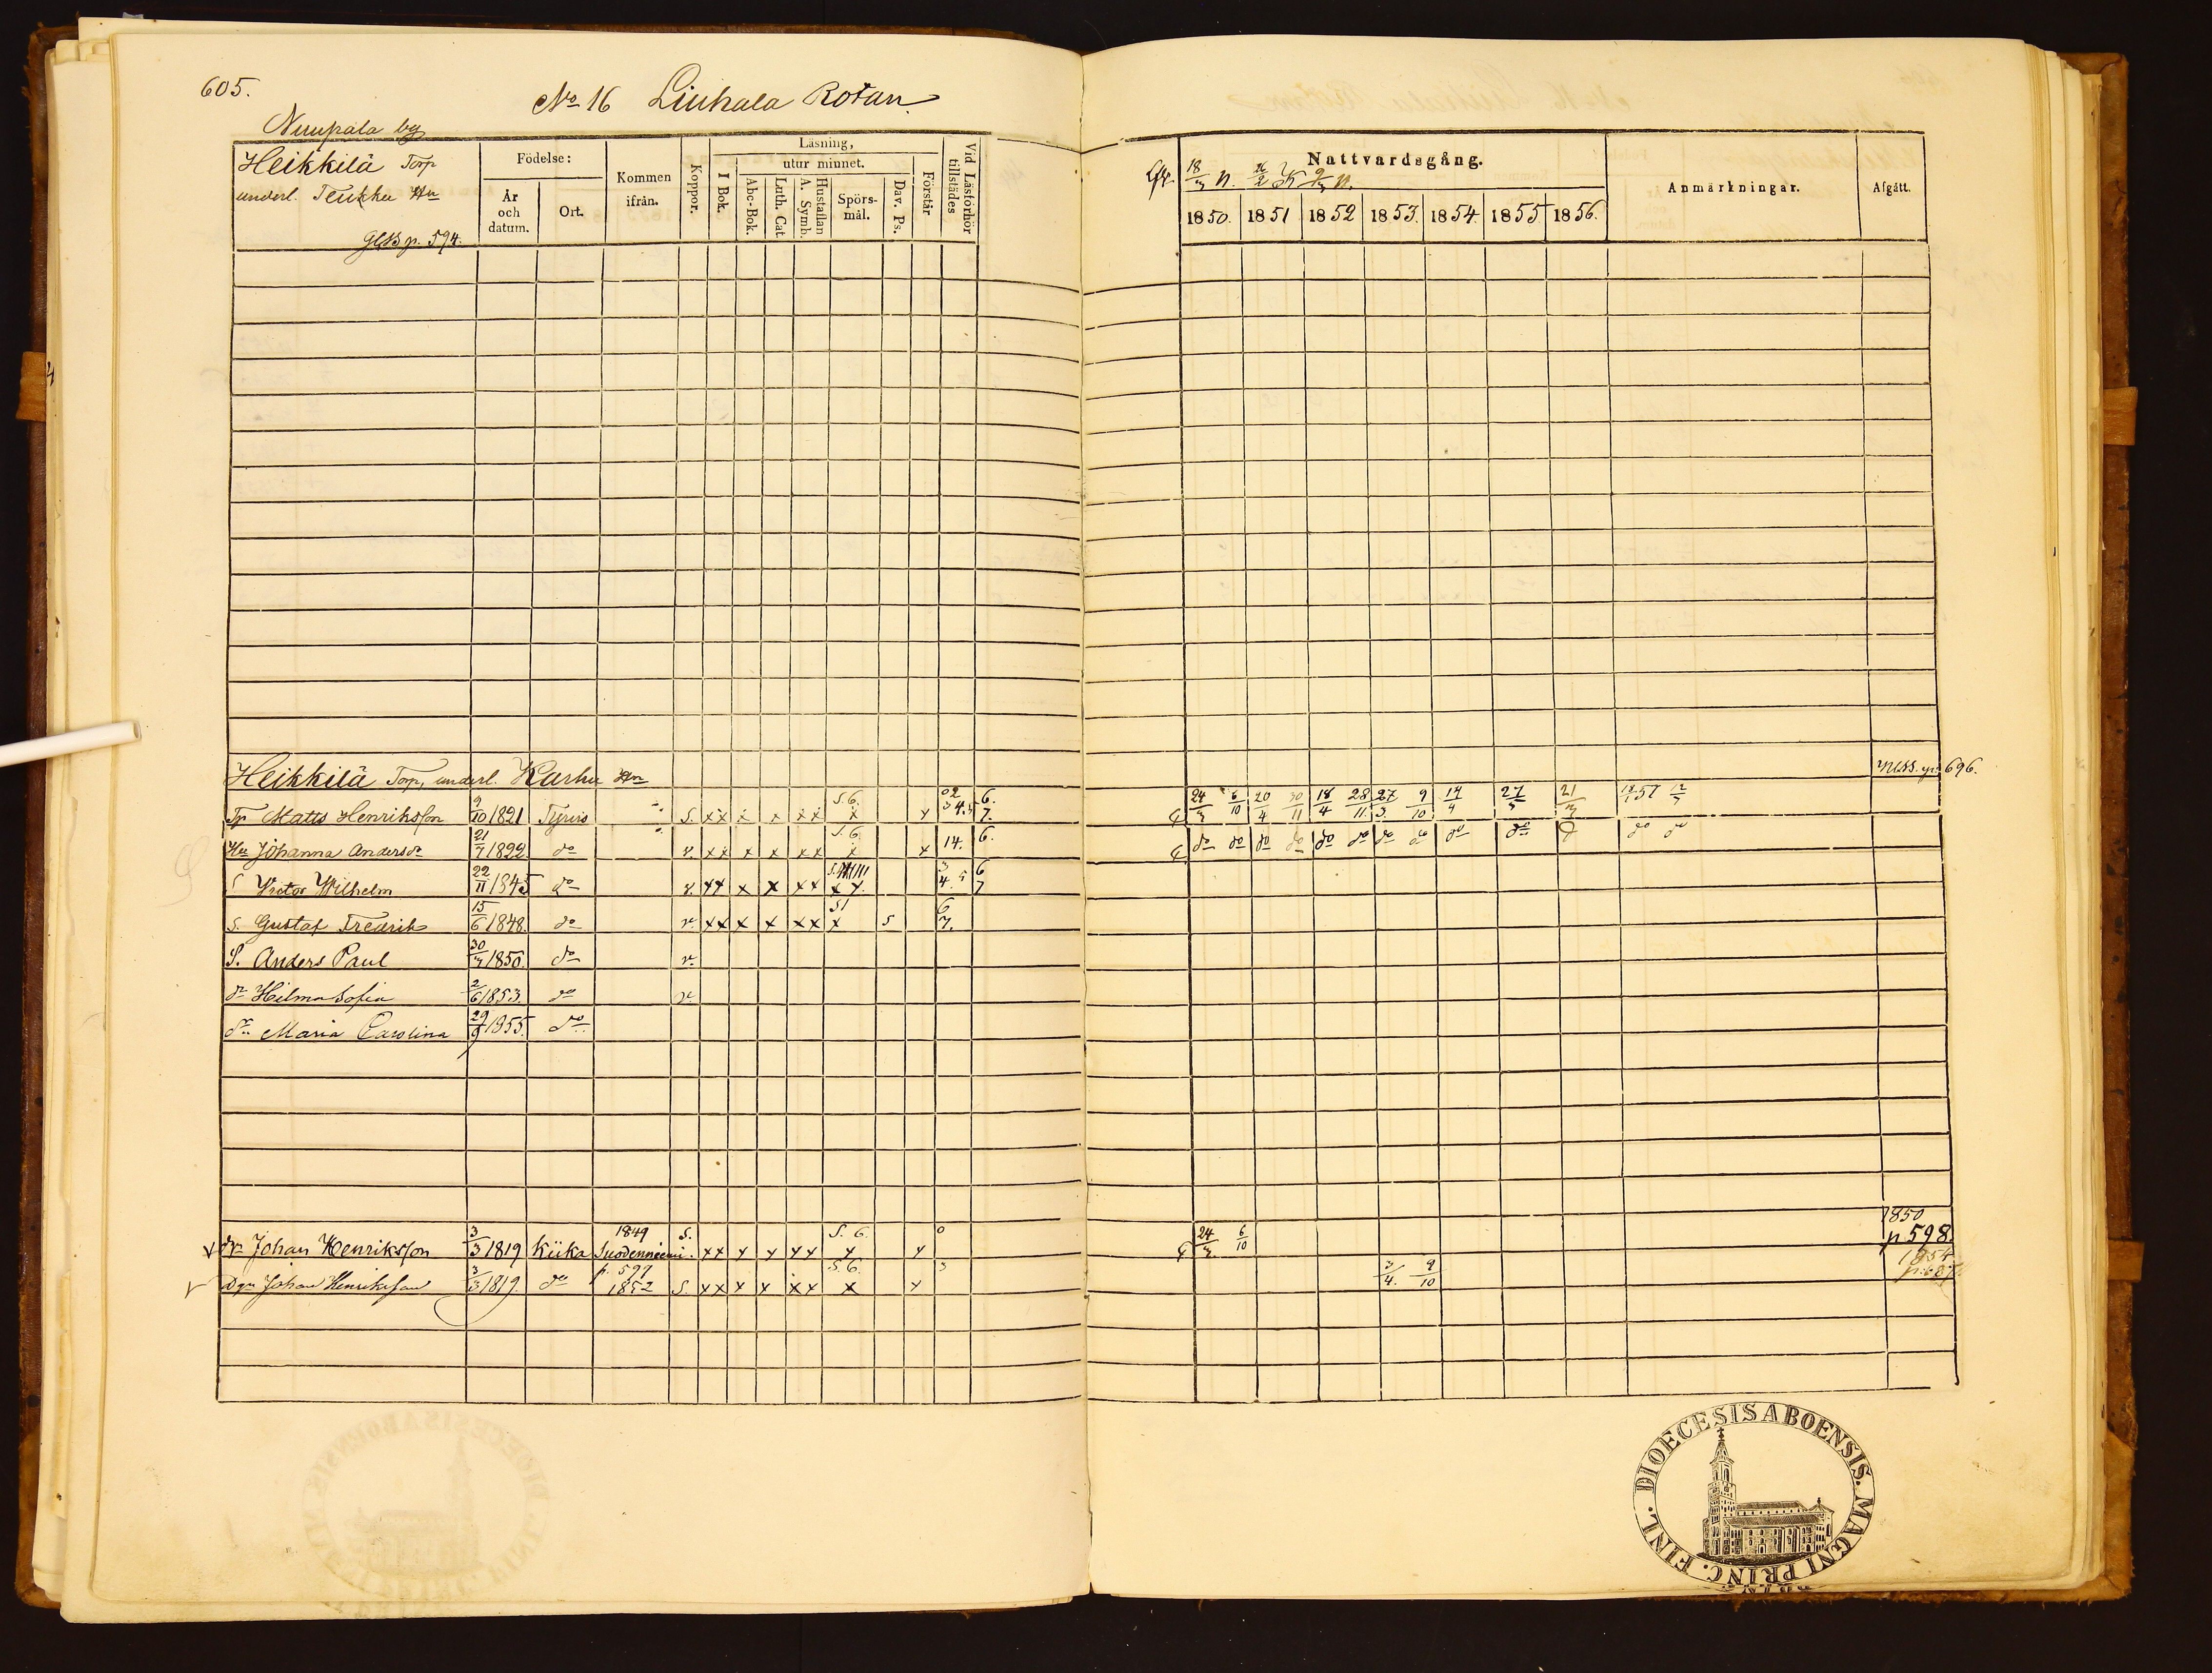 605.
No 16 Liuhala Rotan
Nuupala by
Heikkilä Torp
underl. Teukku Hn
GCB p. 594.
Födelse:
År och datum.
Ort.
Kommen ifrån.
Koppor.
Läsning,
utur minnet.
I Bok.
Abc-Bok.
Luth. Cat
Hustaflan A. Symb.
Spörs-mål.
Dav. Ps.
Förstår
Vid Läsförhör tillstädes
Nattvardsgång.
1850. 1851 1852 1853. 1854. 1855 1856.
Anmärkningar.
Afgått.
Heikkilä Torp, underl. Karhu Hn 696.
Tp Matts Henriksson 9/10 1821 Tyrvis S. x x x x x x S. 6. x x 6. 7. 24/3 6/10 20/4 30/11 18/4 28/11 27/3. 9/10 14/4 27/3 21/3 57
Hu Johanna Andersdr 21/7 1822 do v. x x x x x x S. 6. x x 14. 6. do do do do do do do do do do do do
S Victor Wilhelm 22/11 1845 do v. x x x x x x x x 3 4. 5 6 7
S. Gustaf Fredrik 15/6 1848. do v. x x x x x x S1 x 5 6 7.
S. Anders Paul 30/7 1850. do v.
dr Hilma Sofia 2/6 1853. do v.
dr Maria Carolina 29/9 1855. do
dr Johan Henriksson 3/3 1819 Kiika 1849 Suodenniemi. S. x x x x x x S. 6. x x 0 24/3. 6/10 1850 p 598.
Dr Johan Henriksson 3/3 1819. do p. 597 1852 S. x x x x x x S. 6. x x 3 3/4. 9/10 1854
DIOECESIS ABOENSIS. MAGNI PRINC. FINL.